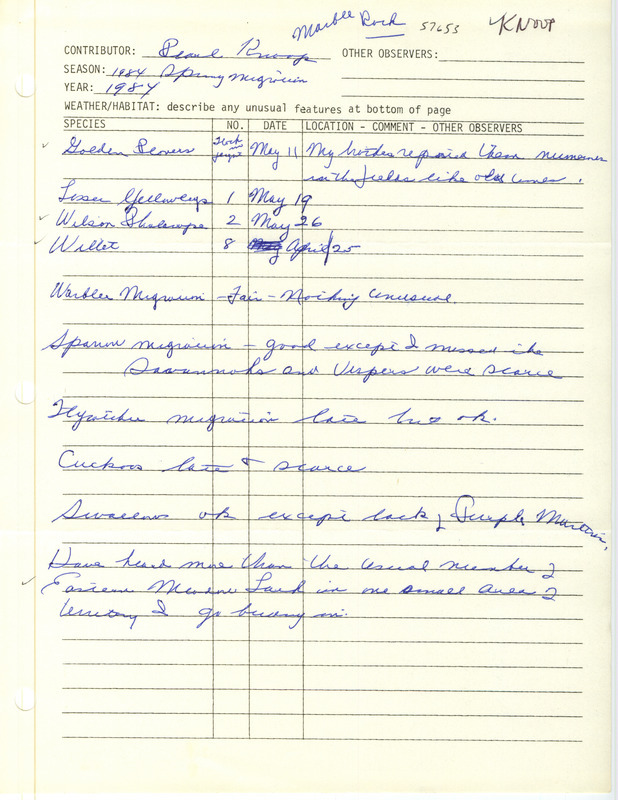 Marble Rock 57653 KNOOP
CONTRIBUTOR: Pearl Knoop OTHER OBSERVERS:
SEASON: 1984 Spring Migration
YEAR: 1984
WEATHER/HABITAT: describe any unusual features at bottom of page
SPECIES NO. DATE LOCATION - COMMENT - OTHER OBSERVERS
Golden Plovers Flock May 11 My brother reported them numerous
in the fields like old times.
Lesser Yellowlegs 1 May 19
Wilson Phalarope 2 May 26
Willet 8 April 25
Warbler Migration - Fair - Nothing unusual.
Sparrow migration - good except I missed the
Savannahs and Vespers were scarce
Flycatcher migration late but ok.
Cuckoos late & scarce
Swallows ok except lack of Purple Martin.
Have heard more than the usual number of
Eastern Meadow Lark in one small area of
territory I go birding in.